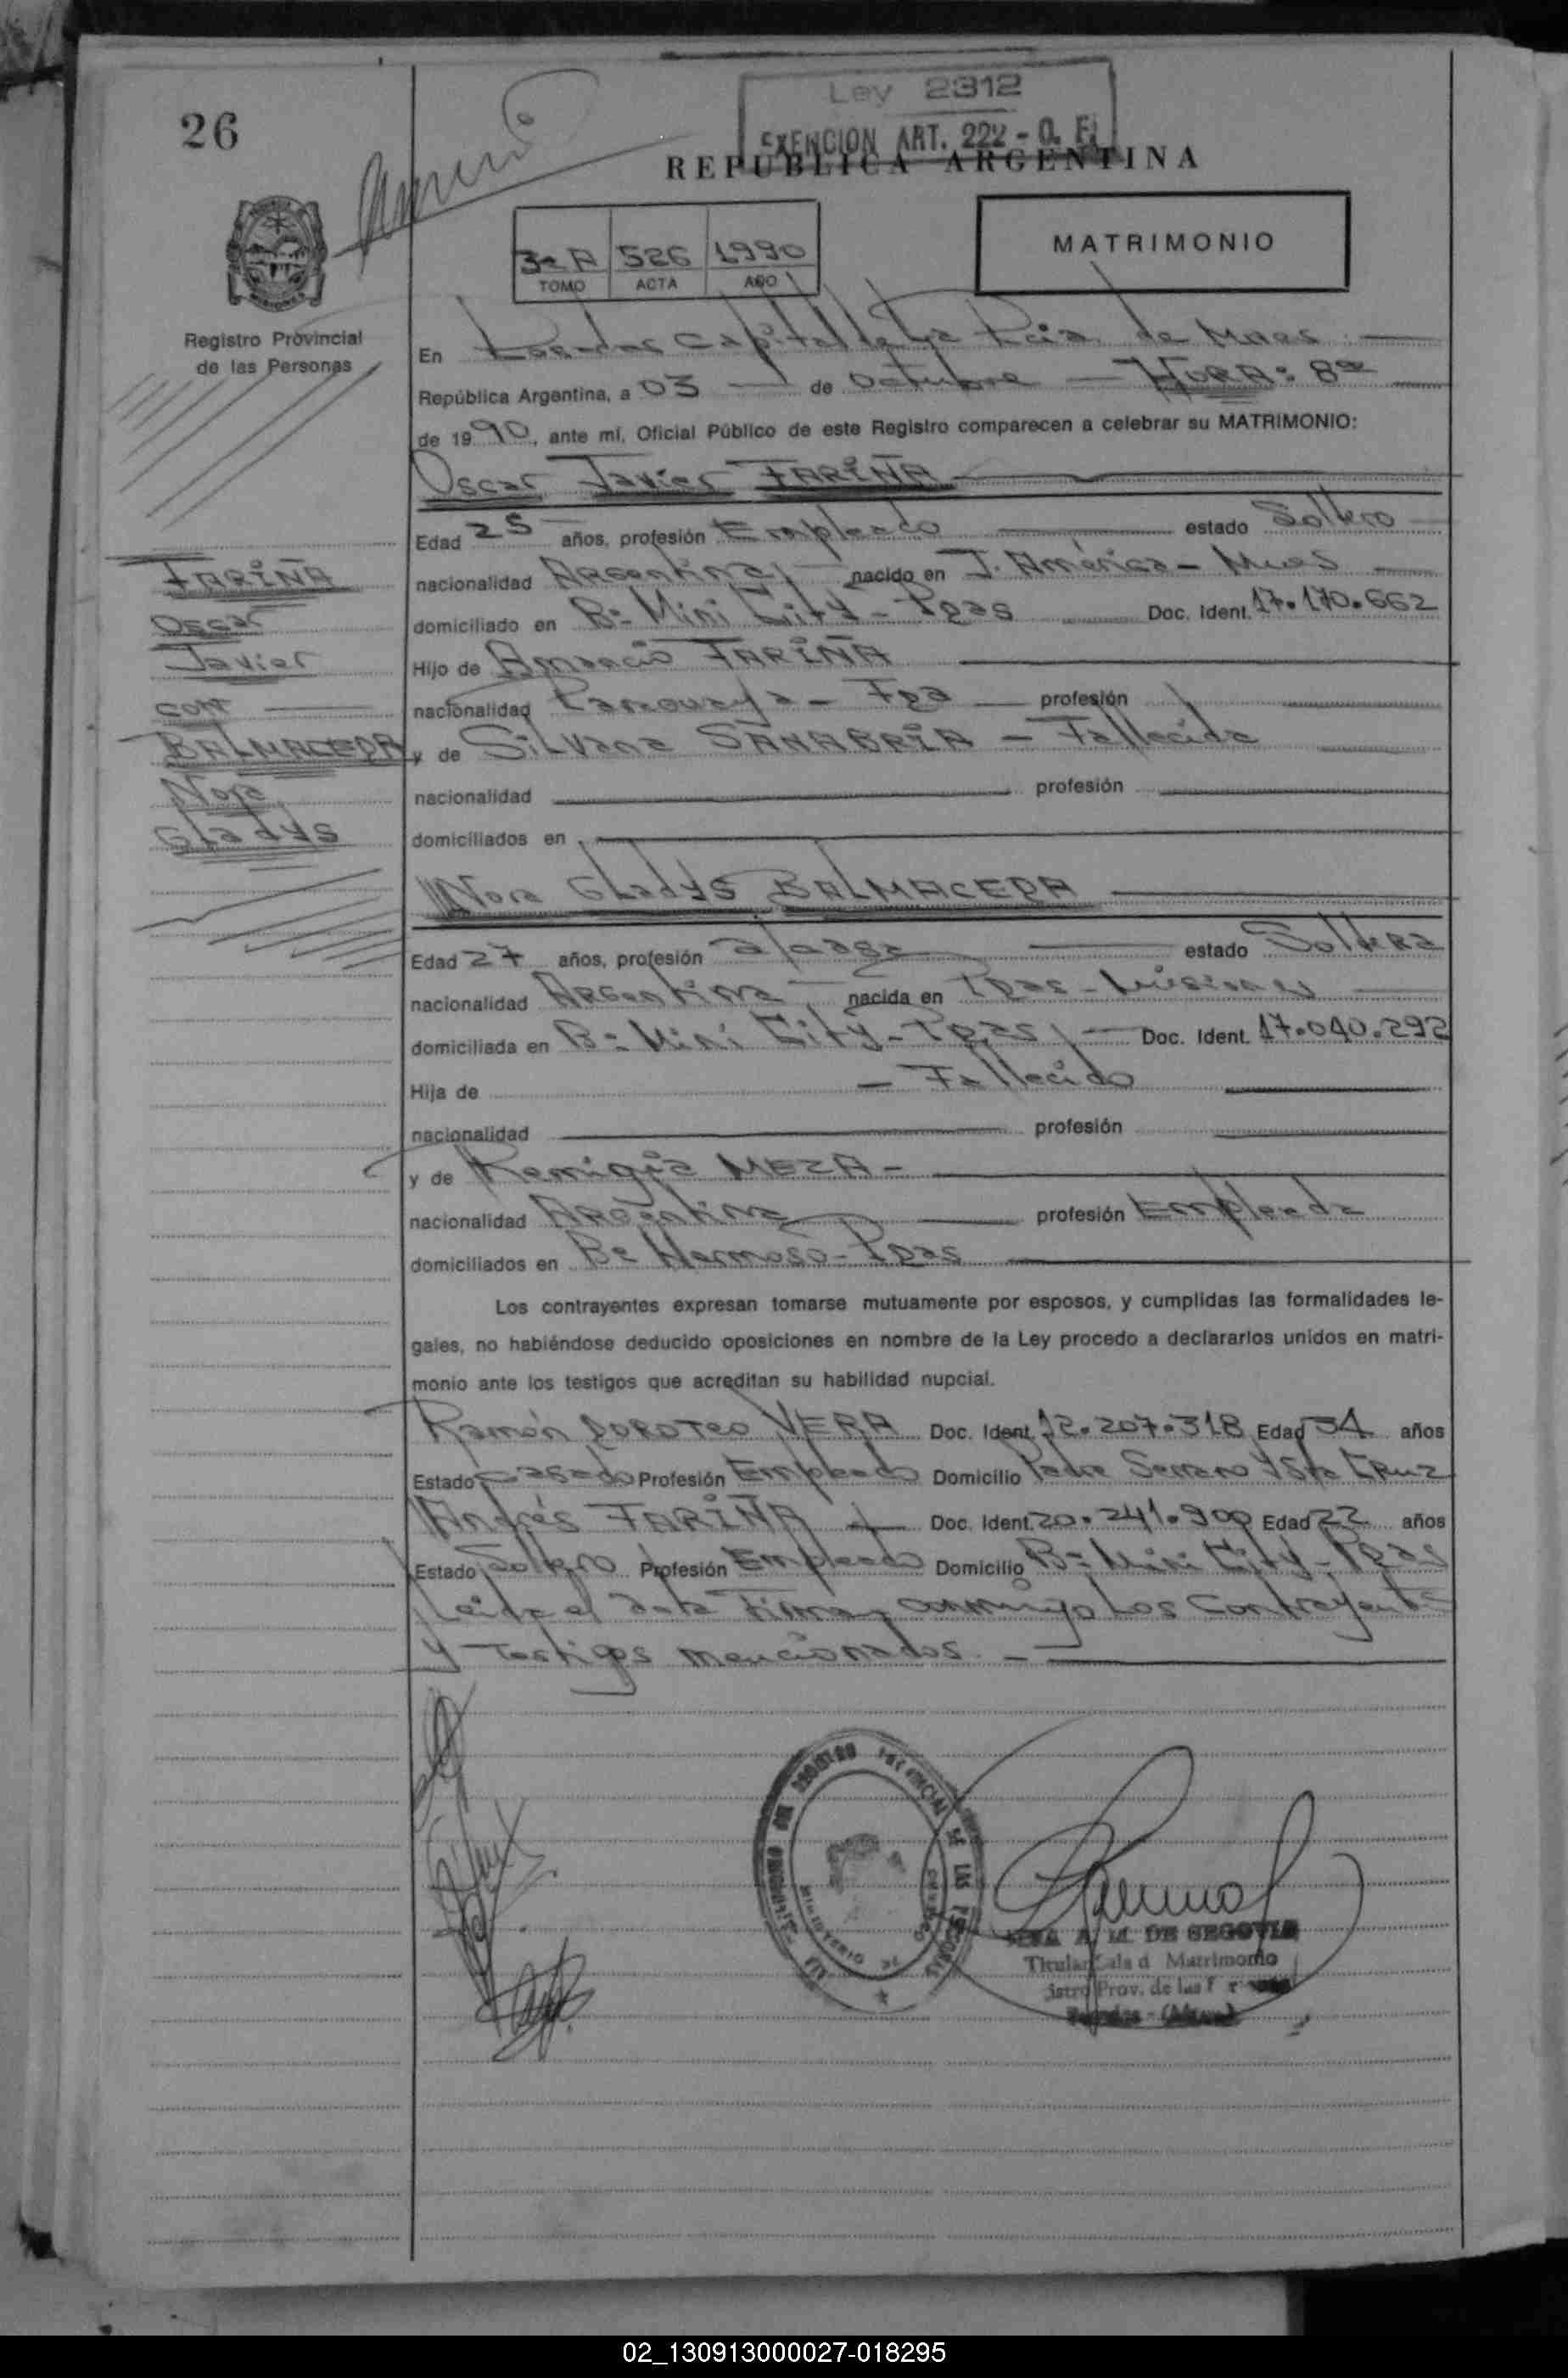 26
Ley 2312
EXENCION ART. 222 - O. F.
REPUBLICA ARGENTINA
3a A 526 1990
TOMO ACTA AÑO
MATRIMONIO
Registro Provincial
de las Personas
En Posadas Capital de la Pcia. de Mnes.
República Argentina, a 03 de Octubre HORA: 8
de 1990, ante mí, Oficial Público de este Registro comparecen a celebrar su MATRIMONIO:
Oscar Javier FARIÑA
Edad 25 años, profesión Empleado estado Soltero
nacionalidad Argentina, nacido en J. América - Mnes
domiciliado en Bº Mini City - Ppas Doc. Ident. 17.170.662
Hijo de Amancio FARIÑA
nacionalidad Paraguaya - profesión
y de Silvana SANABRIA - Fallecida
nacionalidad profesión
domiciliados en
Nora Gladys BALMACEDA
Edad 27 años, profesión estado Soltera
nacionalidad Argentina nacida en Ppas - Misiones
domiciliada en Bº Mini City - Ppas, Doc. Ident. 17.040.292
Hija de - Fallecido
nacionalidad profesión
y de Remigia MEZA -
nacionalidad Argentina profesión Empleada
domiciliados en Bº Hermoso - Ppas
Los contrayentes expresan tomarse mutuamente por esposos, y cumplidas las formalidades le-
gales, no habiéndose deducido oposiciones en nombre de la Ley procedo a declararlos unidos en matri-
monio ante los testigos que acreditan su habilidad nupcial.
Ramón DOROTEO VERA Doc. Ident. 12.207.318 Edad 34 años
Estado Casado Profesión Empleado Domicilio Padre Serrano y Sta Cruz
Andrés FARIÑA Doc. Ident. 20.241.900 Edad 22 años
Estado Soltero Profesión Empleado Domicilio Bº Mini City - Ppas
Leida el acta Firman conmigo Los Contrayentes
y Testigos mencionados. -
FARIÑA
Oscar
Javier
con
BALMACEDA
Nora
Gladys
A. M. DE SEGOVIA
Titular Sala d Matrimonio
Prov. de las
02_130913000027-018295